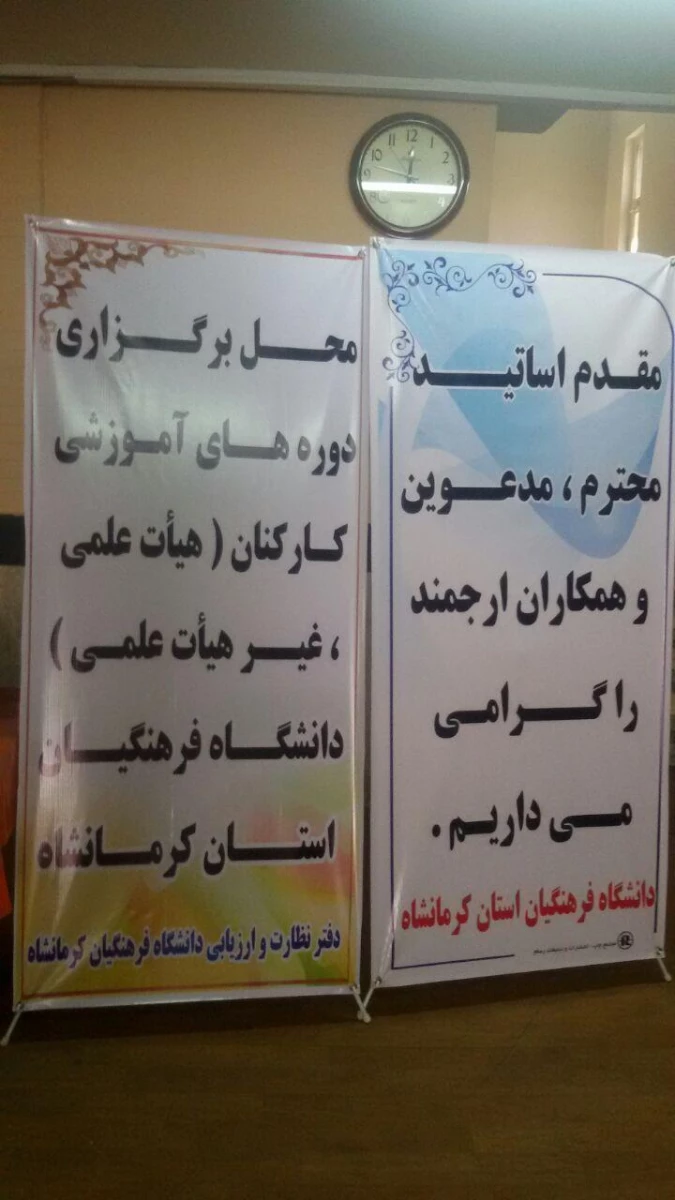 مقدم اساتید
محترم ، مدعوین
و همکاران ارجمند
را گرامی
می داریم .
دانشگاه فرهنگیان استان کرمانشاه
محل برگزاری
دوره های آموزشی
کارکنان ( هیأت علمی
، غیر هیأت علمی )
دانشگاه فرهنگیان
استان کرمانشاه
دفتر نظارت و ارزیابی دانشگاه فرهنگیان کرمانشاه
12
11
1
10
2
9
3